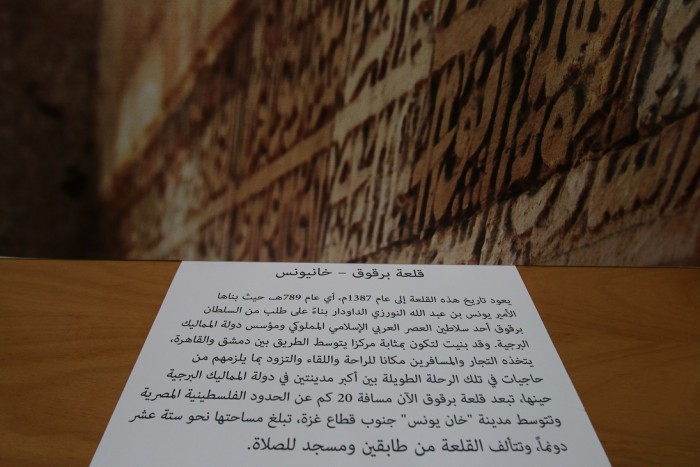 قلعة برقوق – خانيونس
يعود تاريخ هذه القلعة إلى عام 1387م، أي عام 789هـ، حيث بناها
الأمير يونس بن عبد الله النورزي الداودار بناءً على طلب من السلطان
برقوق أحد سلاطين العصر العربي الإسلامي المملوكي ومؤسس دولة المماليك
البرجية. وقد بنيت لتكون بمثابة مركزا يتوسط الطريق بين دمشق والقاهرة،
يتخذه التجار والمسافرين مكانا للراحة واللقاء والتزود بما يلزمهم من
حاجيات في تلك الرحلة الطويلة بين أكبر مدينتين في دولة المماليك البرجية
حينها، تبعد قلعة برقوق الآن مسافة 20 كم عن الحدود الفلسطينية المصرية
وتتوسط مدينة "خان يونس" جنوب قطاع غزة، تبلغ مساحتها نحو ستة عشر
دونماً، وتتألف القلعة من طابقين ومسجد للصلاة.